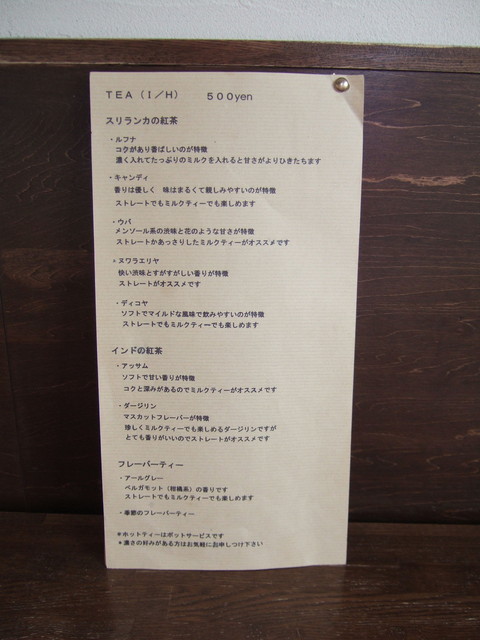 TEA（I／H）　500yen
スリランカの紅茶
・ルフナ
コクがあり香ばしいのが特徴
濃く入れてたっぷりのミルクを入れると甘さがよりひきたちます
・キャンディ
香りは優しく　味はまるくて親しみやすいのが特徴
ストレートでもミルクティーでも楽しめます
・ウバ
メンソール系の渋味と花のような甘さが特徴
ストレートかあっさりしたミルクティーがオススメです
・ヌワラエリヤ
快い渋味とすがすがしい香りが特徴
ストレートがオススメです
・ディコヤ
ソフトでマイルドな風味で飲みやすいのが特徴
ストレートでもミルクティーでも楽しめます
インドの紅茶
・アッサム
ソフトで甘い香りが特徴
コクと深みがあるのでミルクティーがオススメです
・ダージリン
マスカットフレーバーが特徴
珍しくミルクティーでも楽しめるダージリンですが
とても香りがいいのでストレートがオススメです
フレーバーティー
・アールグレー
ベルガモット（柑橘系）の香りです
ストレートでもミルクティーでも楽しめます
・季節のフレーバーティー
＊ホットティーはポットサービスです
＊濃さの好みがある方はお気軽にお申しつけ下さい